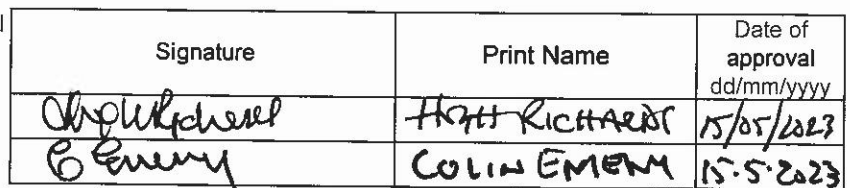 Signature Print Name Date of approval dd/mm/yyyy
RICHARDS 15/05/2023
C Emeny COLIN EMENY 15.5.2023